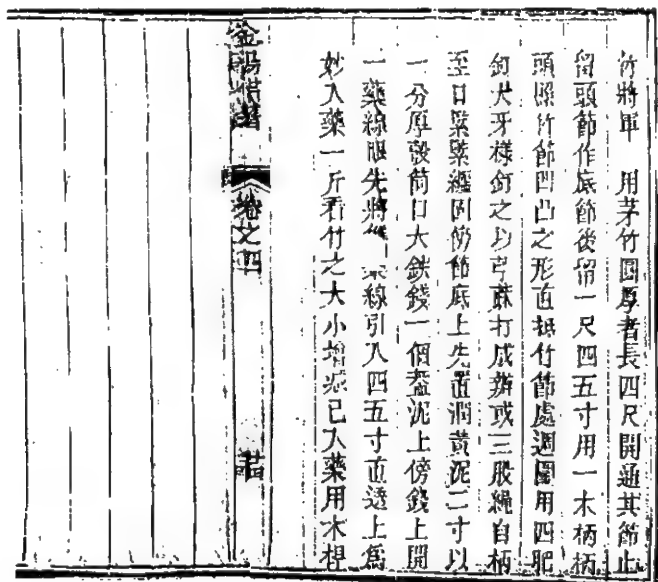 竹將軍　用茅竹圓厚者長四尺開通其節止
留頭節作底節後留一尺四五寸用一木柄柄
頭照竹節凹凸之形直抵竹節處週圍用四肥
釘犬牙樣釘之以弓蔴打成辮或三股繩自柄
至口緊緊纏固仍節底上先置潤黃泥二寸以
一分厚殼筒口大鉄錢一個蓋泥上傍錢上開
一藥線眼先將 線引入四五寸直透上爲
妙入藥一斤看竹之大小增减已入藥用木桿
金湯借箸
卷之四